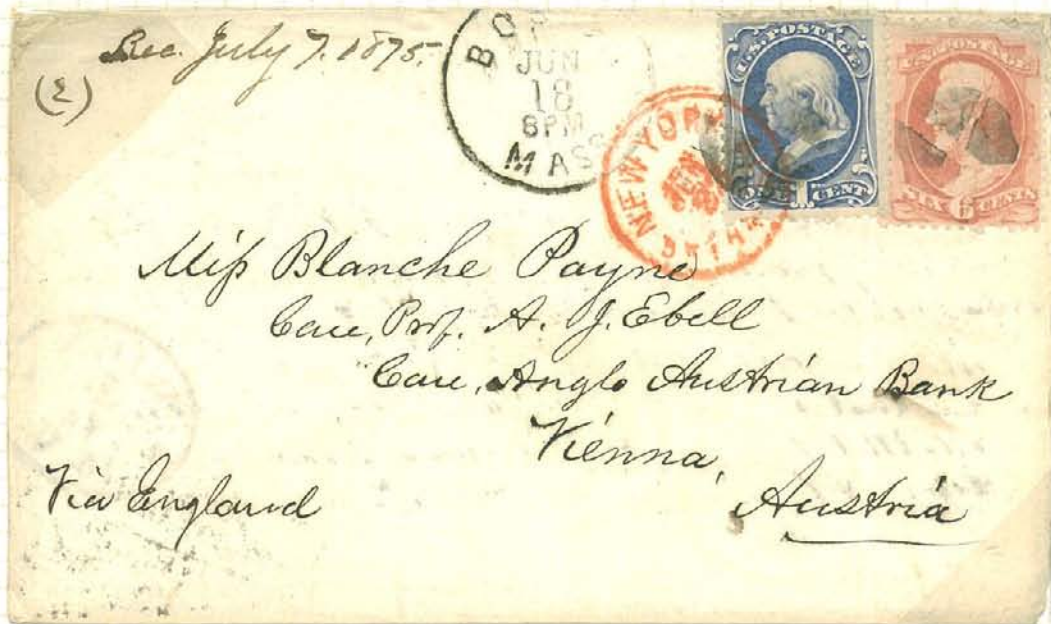 Rec. July 7. 1875.
(2)
BO
JUN
18
8PM
MASS
NEW YORK
U.S. POSTAGE
ONE 1 CENT
SIX 6 CENTS
Miſs Blanche Payne
Care, Prof. A. J. Ebell
Care, Anglo Austrian Bank
Vienna,
Austria
Via England